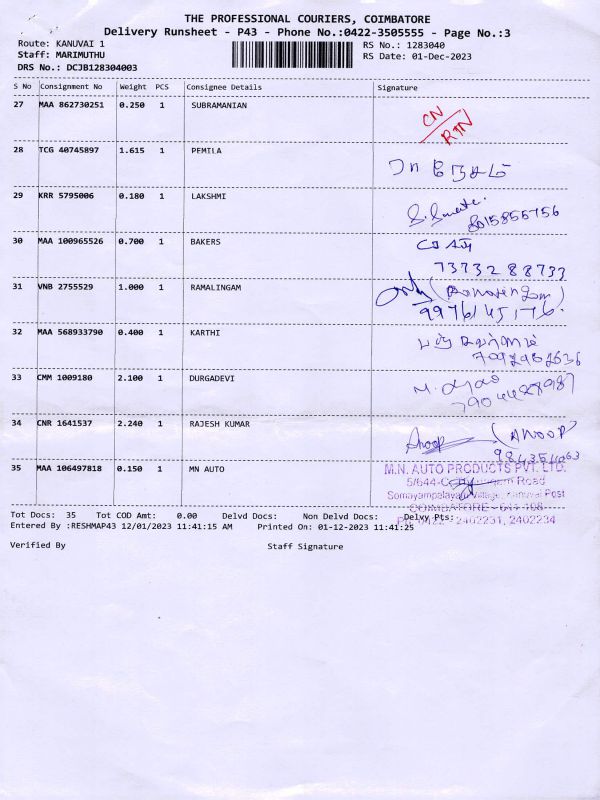 THE PROFESSIONAL COURIERS, COIMBATORE
Delivery Runsheet - P43 - Phone No.:0422-3505555 - Page No.:3
Route: KANUVAI 1 RS No.: 1283040
Staff: MARIMUTHU RS Date: 01-Dec-2023
DRS No.: DCJB128304003
S No Consignment No Weight PCS Consignee Details Signature
27 MAA 862730251 0.250 1 SUBRAMANIAN
CN
RTN
28 TCG 40745897 1.615 1 PEMILA
29 KRR 5795006 0.180 1 LAKSHMI
8015855756
30 MAA 100965526 0.700 1 BAKERS
73732 88733
31 VNB 2755529 1.000 1 RAMALINGAM
32 MAA 568933790 0.400 1 KARTHI
33 CMM 1009180 2.100 1 DURGADEVI
34 CNR 1641537 2.240 1 RAJESH KUMAR
Anoop (ANOOP)
35 MAA 106497818 0.150 1 MN AUTO
M.N. AUTO PRODUCTS PVT. LTD.
5/644-C Road
Somayampalayam Village, Kanuvai Post
COIMBATORE - 641 108
PH: 0422 - 2402231, 2402234
Tot Docs: 35 Tot COD Amt: 0.00 Delvd Docs: Non Delvd Docs: Delvy Pts:
Entered By :RESHMAP43 12/01/2023 11:41:15 AM Printed On: 01-12-2023 11:41:25
Verified By Staff Signature